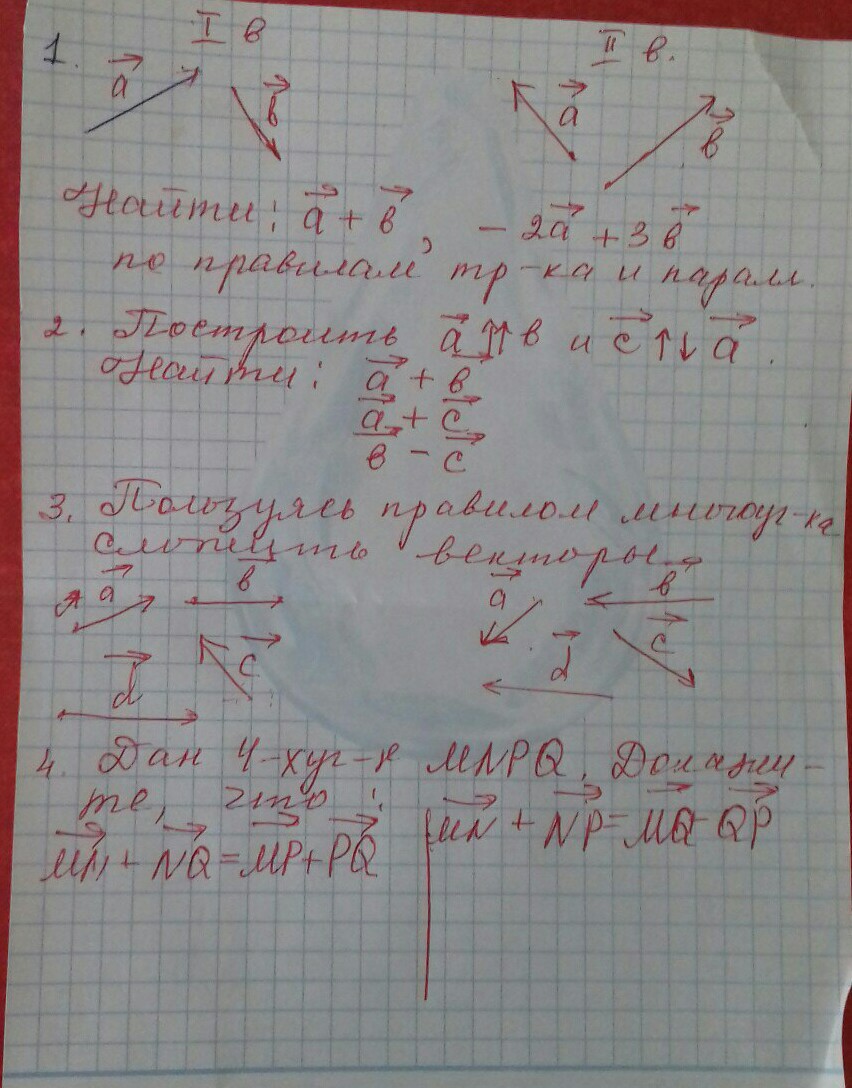 I в II в.
1. a⃗ b⃗ a⃗ b⃗
Найти: a⃗ + b⃗, - 2a⃗ + 3b⃗
по правилам тр-ка и паралл.
2. Построить a⃗ ↑↑ b⃗ и c⃗ ↑↓ a⃗.
Найти: a⃗ + b⃗
a⃗ + c⃗
b⃗ - c⃗
3. Пользуясь правилом многоуг-ка
сложить векторы.
a⃗ b⃗ a⃗ b⃗
c⃗ c⃗
d⃗ d⃗
4. Дан 4-хуг-к MNPQ. Докажи-
те, что:
MN⃗ + NQ⃗ = MP⃗ + PQ⃗ | MN⃗ + NP⃗ = MQ⃗ - QP⃗